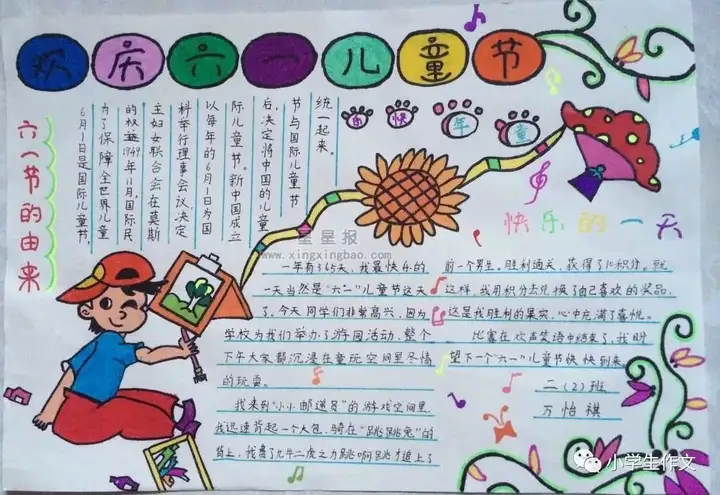 欢庆六一儿童节
六一节的由来
6月1日是国际儿童节,
为了保障全世界儿童
的权益1949年11月,国际民
主妇女联合会在莫斯
科举行理事会议,决定
以每年的6月1日为国
际儿童节。新中国成立
后,决定将中国的儿童
节与国际儿童节
统一起来。
快年童
快乐的一天
一年有365天,我最快乐的
一天当然是“六一”儿童节这天
了,今天同学们非常高兴,因为
学校为我们举办了游园活动,整个
下午大家都沉浸在童玩空间里尽情
的玩耍。
我来到“小小邮递员”的游戏空间里,
我迅速背起一个大包,骑在“跳跳兔”的
背上,我费了九牛二虎之力跳啊跳才追上了
前一个男生。胜利通关,获得了10积分。就
这样,我用积分去兑换了自己喜欢的奖品,
这是我胜利的果实,心中充满了喜悦。
比赛在欢声笑语中结束了,我盼
望下一个“六一”儿童节快快到来
二(2)班
万怡祺
星星报
www.xingxingbao.com
小学生作文